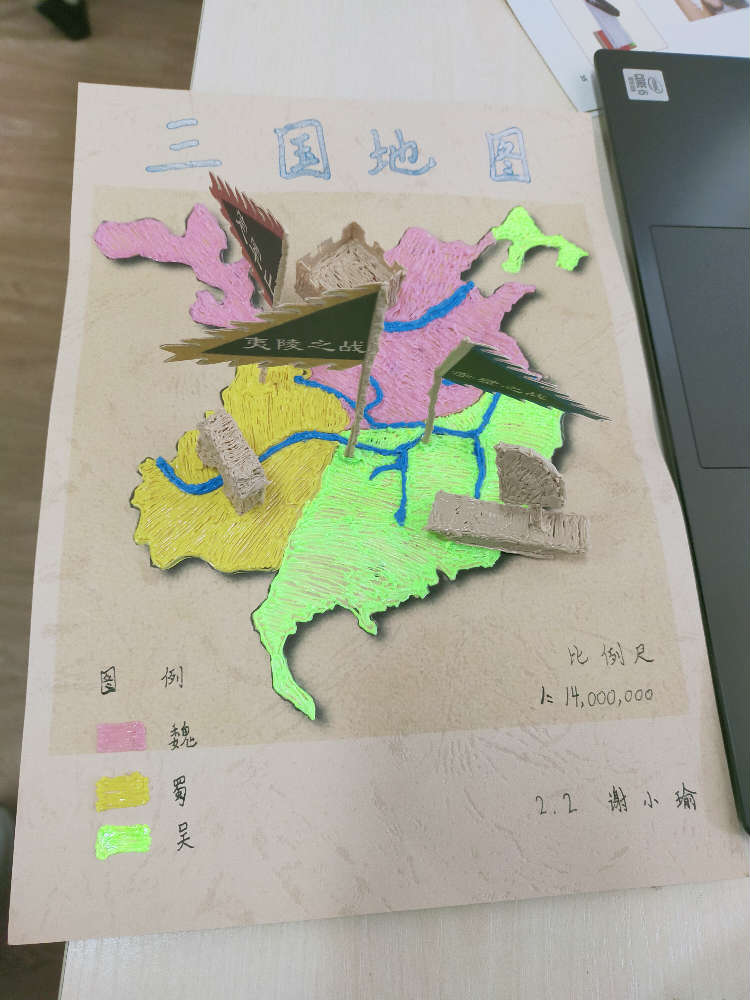 三国地图
夷陵之战
图例
魏
蜀
吴
比例尺
1:14,000,000
2.2 谢小瑜